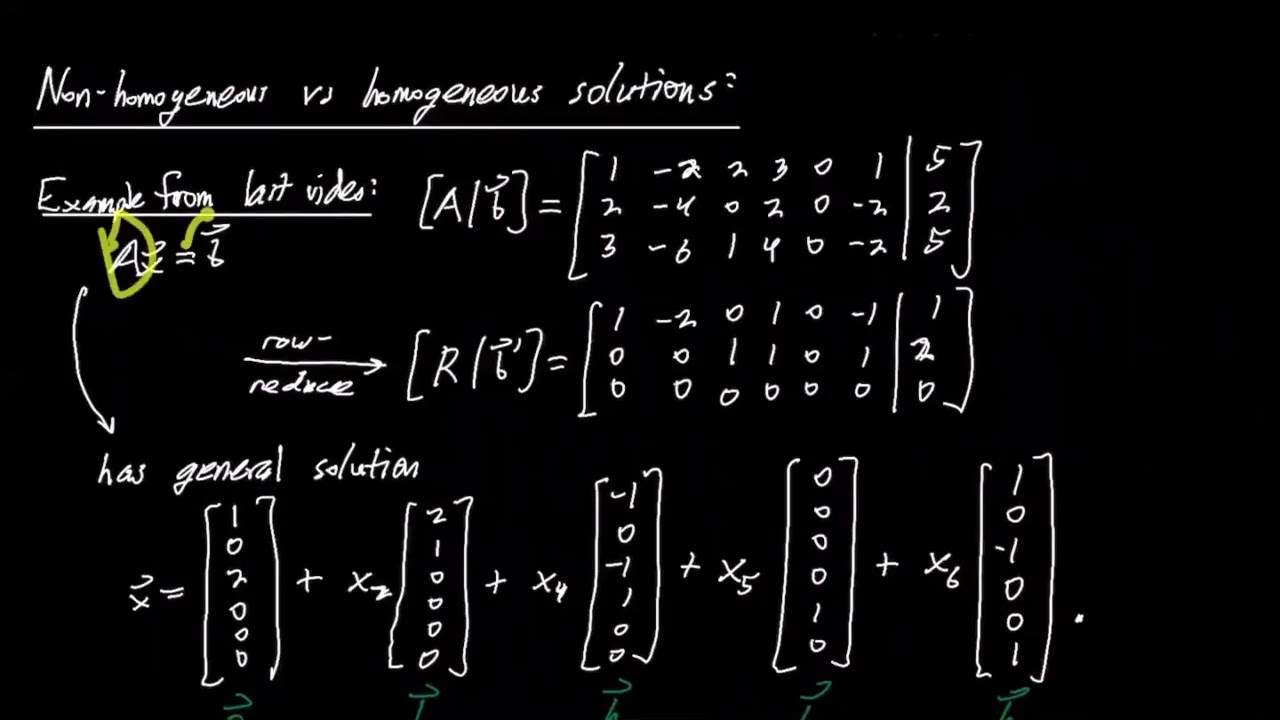 Non-homogeneous vs homogeneous solutions:
Example from last video:
[A|b⃗] = [ 1 -2 2 3 0 1 | 5
2 -4 0 2 0 -2 | 2
3 -6 1 4 0 -2 | 5 ]
Ax⃗ = b⃗
row-
reduce
[R|b⃗'] = [ 1 -2 0 1 0 -1 | 1
0 0 1 1 0 1 | 2
0 0 0 0 0 0 | 0 ]
has general solution
x⃗ = [ 1 0 2 0 0 0 ] + x₂ [ 2 1 0 0 0 0 ] + x₄ [ -1 0 -1 1 0 0 ] + x₅ [ 0 0 0 0 1 0 ] + x₆ [ 1 0 -1 0 0 1 ] .